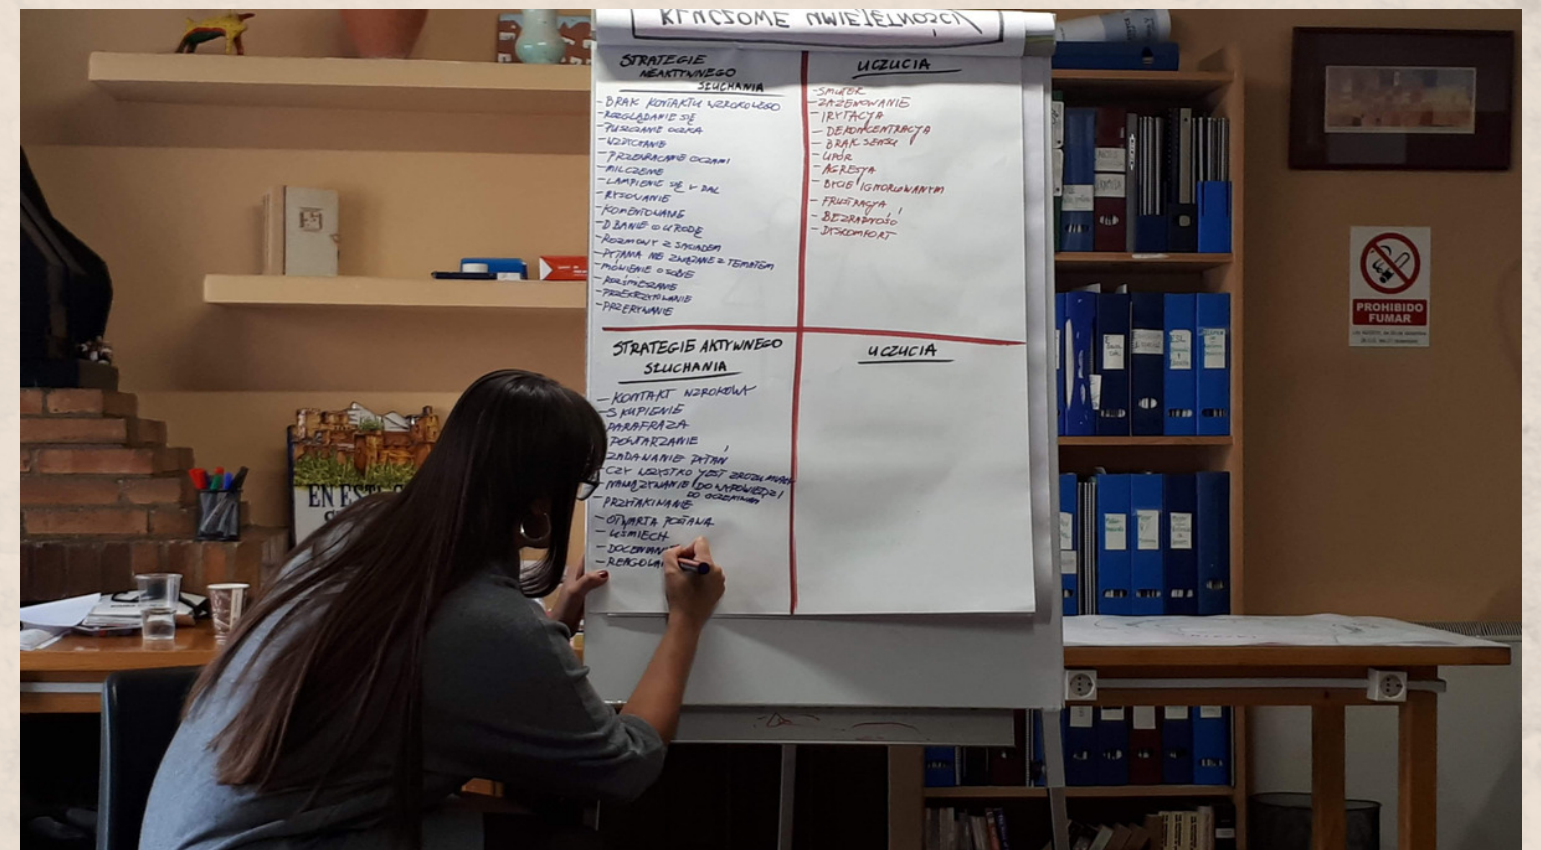 KLUCZOWE UMIEJĘTNOŚCI
STRATEGIE
NIEAKTYWNEGO
SŁUCHANIA
- BRAK KONTAKTU WZROKOWEGO
- ROZGLĄDANIE SIĘ
- PUSZCZANIE OCZKA
- WZDYCHANIE
- PRZEWRACANIE OCZAMI
- MILCZENIE
- LAMPIENIE SIĘ W DAL
- RYSOWANIE
- KOMENTOWANIE
- DBANIE O URODĘ
- ROZMOWY Z SĄSIADEM
- PYTANIA NIE ZWIĄZANE Z TEMATEM
- MÓWIENIE O SOBIE
- PRZEKRZYKIWANIE
- PRZERYWANIE
UCZUCIA
- SMUTEK
- ZAŻENOWANIE
- IRYTACJA
- DEKONCENTRACJA
- BRAK SENSU
- UPÓR
- AGRESJA
- BYCIE IGNOROWANYM
- FRUSTRACJA
- BEZRADNOŚĆ
- DYSKOMFORT
STRATEGIE AKTYWNEGO
SŁUCHANIA
- KONTAKT WZROKOWY
- SKUPIENIE
PARAFRAZA
POWTARZANIE
ZADAWANIE PYTAŃ
- CZY WSZYSTKO JEST
- NAWIĄZYWANIE DO WYPOWIEDZI
- PRZYTAKIWANIE
- OTWARTA POSTAWA
- UŚMIECH
- DOCENIANIE
UCZUCIA
EN EST
PROHIBIDO
FUMAR